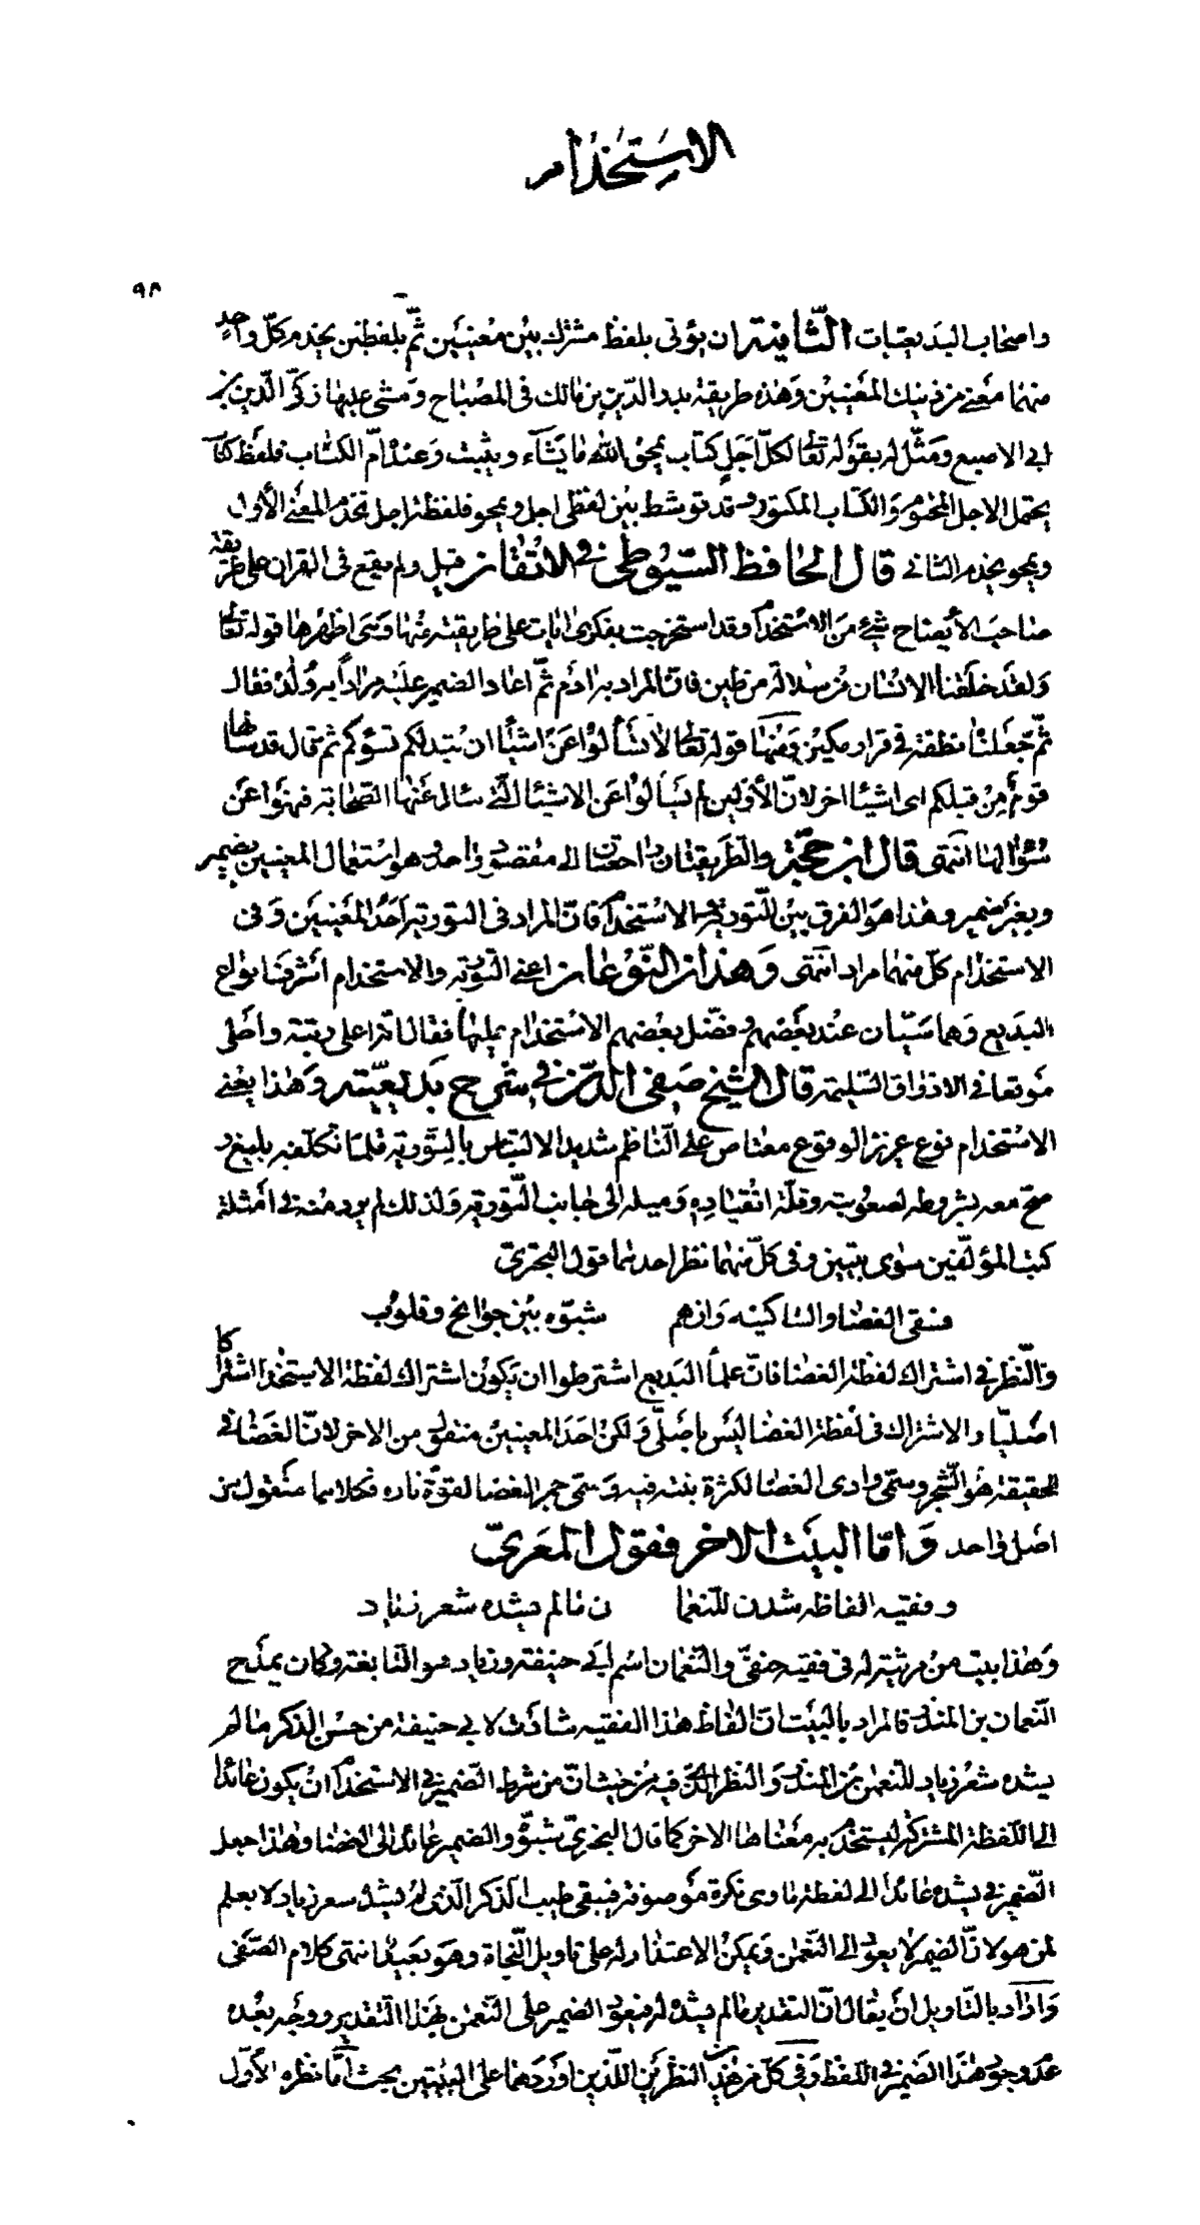 الاستخدام
٩٨
واصحاب البديعيات الثانية ان يؤتى بلفظ مشترك بين معنيين ثم بلفظين يخدم كل واحد
منهما معنى من ذينك المعنيين وهذه طريقة بدر الدين بن مالك فى المصباح ومشى عليها زكى الدين بن
ابى الاصبع ومثل له بقوله تعالى لكل اجل كتاب يمحو الله ما يشآء ويثبت وعنده ام الكتاب فلفظ كتاب
يحتمل الاجل المحتوم والكتاب المكتوب وقد توسط بين لفظى اجل ويمحو فلفظة اجل تخدم المعنى الأول
ويمحو يخدم الثانى قال الحافظ السيوطى فى الاتقان قيل ولم يقع فى القران على طريقة
صاحب الأيضاح شئ من الاستخدام وقد استخرجت بفكرى ايات على طريقته منها وهى اظهرها قوله تعالى
ولقد خلقنا الانسان من سلالة من طين فان المراد به ادم ثم اعاد الضمير عليه مراداً به ولده فقال
ثم جعلناه نطفة فى قرار مكين ومنها قوله تعالى لا تسألوا عن اشيأ ان تبد لكم تسؤكم ثم قال قد سالها
قوم من قبلكم اى اشيئا اخر لان الأولين لم يسألوا عن الاشيئا التى سال عنها الصحابة فنهوا عن
سؤالها انتهى قال ابن حجة والطريقتان راجعتان الى مقصود واحد وهو استعمال المعنيين بضمير
وبغير ضمير وهذا هو الفرق بين التورية والاستخدام فان المراد فى التورية احد المعنيين وفى
الاستخدام كل منهما مراد انتهى وهذان النوعان اعنى التورية والاستخدام اشرف انواع
البديع وهما سيان عند بعضهم وفضل بعضهم الاستخدام عليها فقال انه اعلى رتبة واحلى
موقعا فى الاذواق السليمة قال الشيخ صفى الدين فى شرح بديعيته وهذا يعنى
الاستخدام نوع عزيز الوقوع معتاص على الناظم شديد الالتباس بالتورية قلما تكلفه بليغ و
صح معه بشروطه لصعوبته وقلة انقياده وميله الى جانب التورية ولذلك لم يرد منه فى امثلة
كتب المؤلفين سوى بيتين وفى كل منهما نظر احدهما قول البحترى
فسقى الغضا والساكنيه وان هم شبوه بين جوانح وقلوب
والنظر فى اشتراك لفظة الغضا فان علمأ البديع اشترطوا ان يكون اشتراك لفظة الاستخدام اشتراكا
اصليا والاشتراك فى لفظة الغضا ليس باصلى ولكن احد المعنيين منقول من الاخر لان الغضا فى
الحقيقة هو الشجر وسمى وادى الغضا لكثرة نبته فيه وسمى جمر الغضا لقوة ناره فكلاهما منقول من
اصل واحد واما البيت الاخر فقول المعرى
وفقيه الفاظه شدن للنعما ن مالم يشده شعر زياد
وهذا بيت من مرثية له فى فقيه حنفى والنعمان اسم ابى حنيفة وزياد هو النابغة وكان يمدح
النعمان بن المنذر فالمراد بالبيت ان الفاظ هذا الفقيه شادت لابى حنيفة من حسن الذكر ما لم
يشده شعر زياد للنعمن بن المنذر والنظر الذى فيه من حيث ان من شرط الضمير فى الاستخدام ان يكون عائدا
الى اللفظة المشتركة ليستخدم به معناها الاخر كما قال البحترى شبوه والضمير عائد الى الغضا وهذا جعل
الضمير فى يشده عائدا الى لفظة ما وهى نكرة موصوفة فيبقى طيب الذكر الذى لم يشده سعر زياد لا يعلم
لمن هو لان الضمير لا يعود الى النعمن ويمكن الاعتذار له على تاويل النحاة وهو بعيد انتهى كلام الصفى
واراد بالتاويل ان يقال ان التقدير مالم يشده له فيعود الضمير على النعمن بهذا التقدير ووجه بعده
عدم وجود هذا الضمير فى اللفظ وفى كل من هذين النظرين اللذين اوردهما على البيتين بحث اما نظره الأول